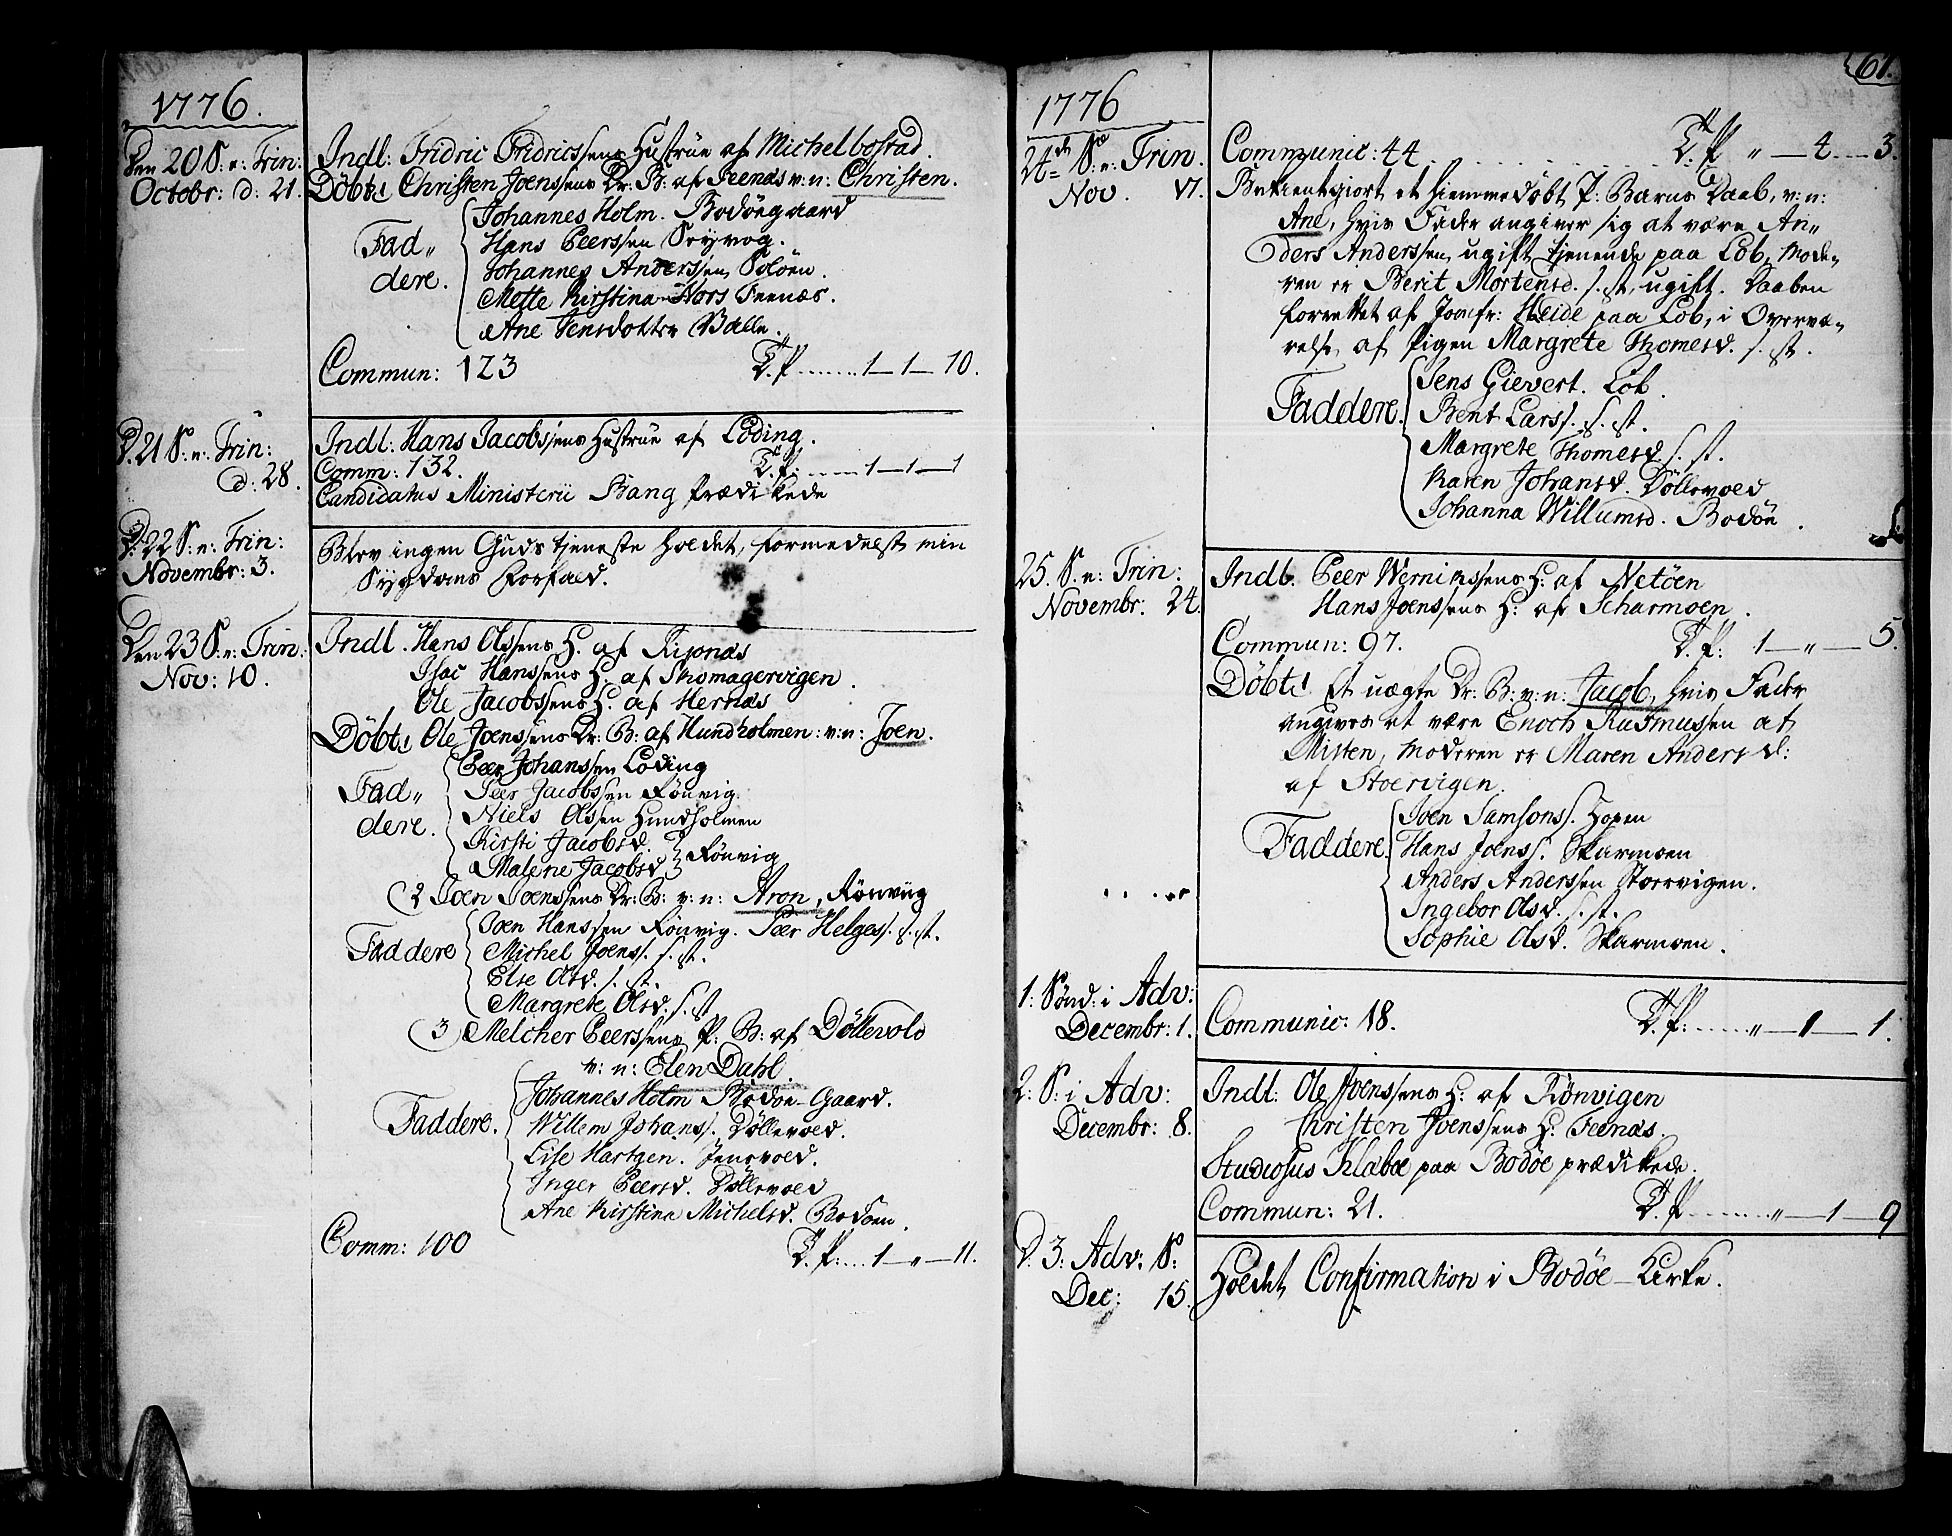 1776.
Den 20 S. e: Trin:
Octobr: d. 21.
Indl: Fridric Fridricssens Hustrue af Michelbostad.
Døbt: Christen Joenssens Dr: B: af Feenæs v: n: Christen.
Fad„
dere.
Johannes Holm. Bodøegaard
Hans Peerssen
Johannes Anderssen
Mette Kirstina Hors Feenæs.
Ane Jensdotter
Commun: 123
T. P. ........ 1—1—10.
D. 21 S. e: Trin:
d. 28.
Indl: Hans Jacobssens Hustrue af Løding.
Comm: 132.
T. P. ...... 1—1—1
Candidatus Ministerii Bang prædikede
D. 22 S: e: Trin:
Novembr: 3.
Blev ingen Guds tjeneste holdet, formedelst min
Sygdoms Forfald.
Den 23 S. e: Trin:
Nov: 10.
Indl. Hans Olssens H. af Ripnæs
Isac Hanssens H: af Skomagervigen.
Ole Jacobssens H: af Hernæs
Døbt: Ole Joenssens Dr: B: af Hundholmen: v: n: Joen.
Fad„
dere.
Peer Johanssen Løding
Peer Jacobssen Rønvig.
Niels Olssen Hundholmen
Kirsti Jacobsd.
Malene Jacobsd } Rønvig
(2 Joen Joenssens Dr: B: v: n: Aron, Rønviig
Faddere
Joen Hanssen Rønvig. Peer Helgess. s. st.
Michel Joenss. s. st.
Else Olsd. s. st.
Margrete Olsd. s. st
(3) Melcher Peerssens P: B: af Døllevold
v: n: Elen Dahl.
Faddere.
Johannes Holm Bodøe-Gaard.
Willem Johanss. Døllevold.
Lise Hartgen. Jensvold.
Inger Peersd. Døllevold
Ane Kirstine Michelsd. Bodøen.
Comm: 100
T. P: ... 1—„—11.
61.
1776
24de S. e: Trin.
Nov. 17.
Communic: 44. . . . . . T. P. „—4—3.
Bekientgiort et hiemmedøbt P: Barns Daab, v: n:
Ane, hvis Fader angiver sig at være An„
ders Anderssen, ugift tjenende paa Løb, Mode„
ren er Berit Mortensd. s. st. ugift. Daaben
forrettet af Jomfr: Heide paa Løb, i Overvæ„
relse af Pigen Margrete Thomesd. s. st.
Faddere.
Jens Gievert. Løb.
Bent Larss. s. st.
Margrete Thomesd. s. st.
Karen Johansd. Døllevold
Johanna Willumsd. Bodøe.
25. S. e: Trin:
Novembr: 24.
Indl. Peer Wernikssens H: af Netøen
Hans Joenssens H: af Scharmoen.
Commun: 97. T. P: 1—„—5.
Døbt: Et uægte Dr: B: v: n: Jacob, hvis Fader
angives at være Enoch Rasmussen af
Misten, Moderen er Maren Andersd:
af Stoervigen.
Faddere
Joen Samsonss. Hopen
Hans Joenss. Skarmoen
Anders Anderssen Storvigen.
Ingebor Olsd. s. st.
Sophie Olsd. Skarmoen.
1: Sønd: i Adv:
Decembr: 1.
Communic: 18. T. P: ...... „—1—1.
2: S: i Adv:
Decembr: 8.
Indl: Ole Joenssens H: af Rønvigen
Christen Joenssens H: Feenæs.
Studiosus Klabøe paa Bodøe prædikede.
Commun: 21. T. P. ........ „—1—9
D. 3. Adv: S:
Dec: 15.
Holdet Confirmation i Bodøe-Kirke.